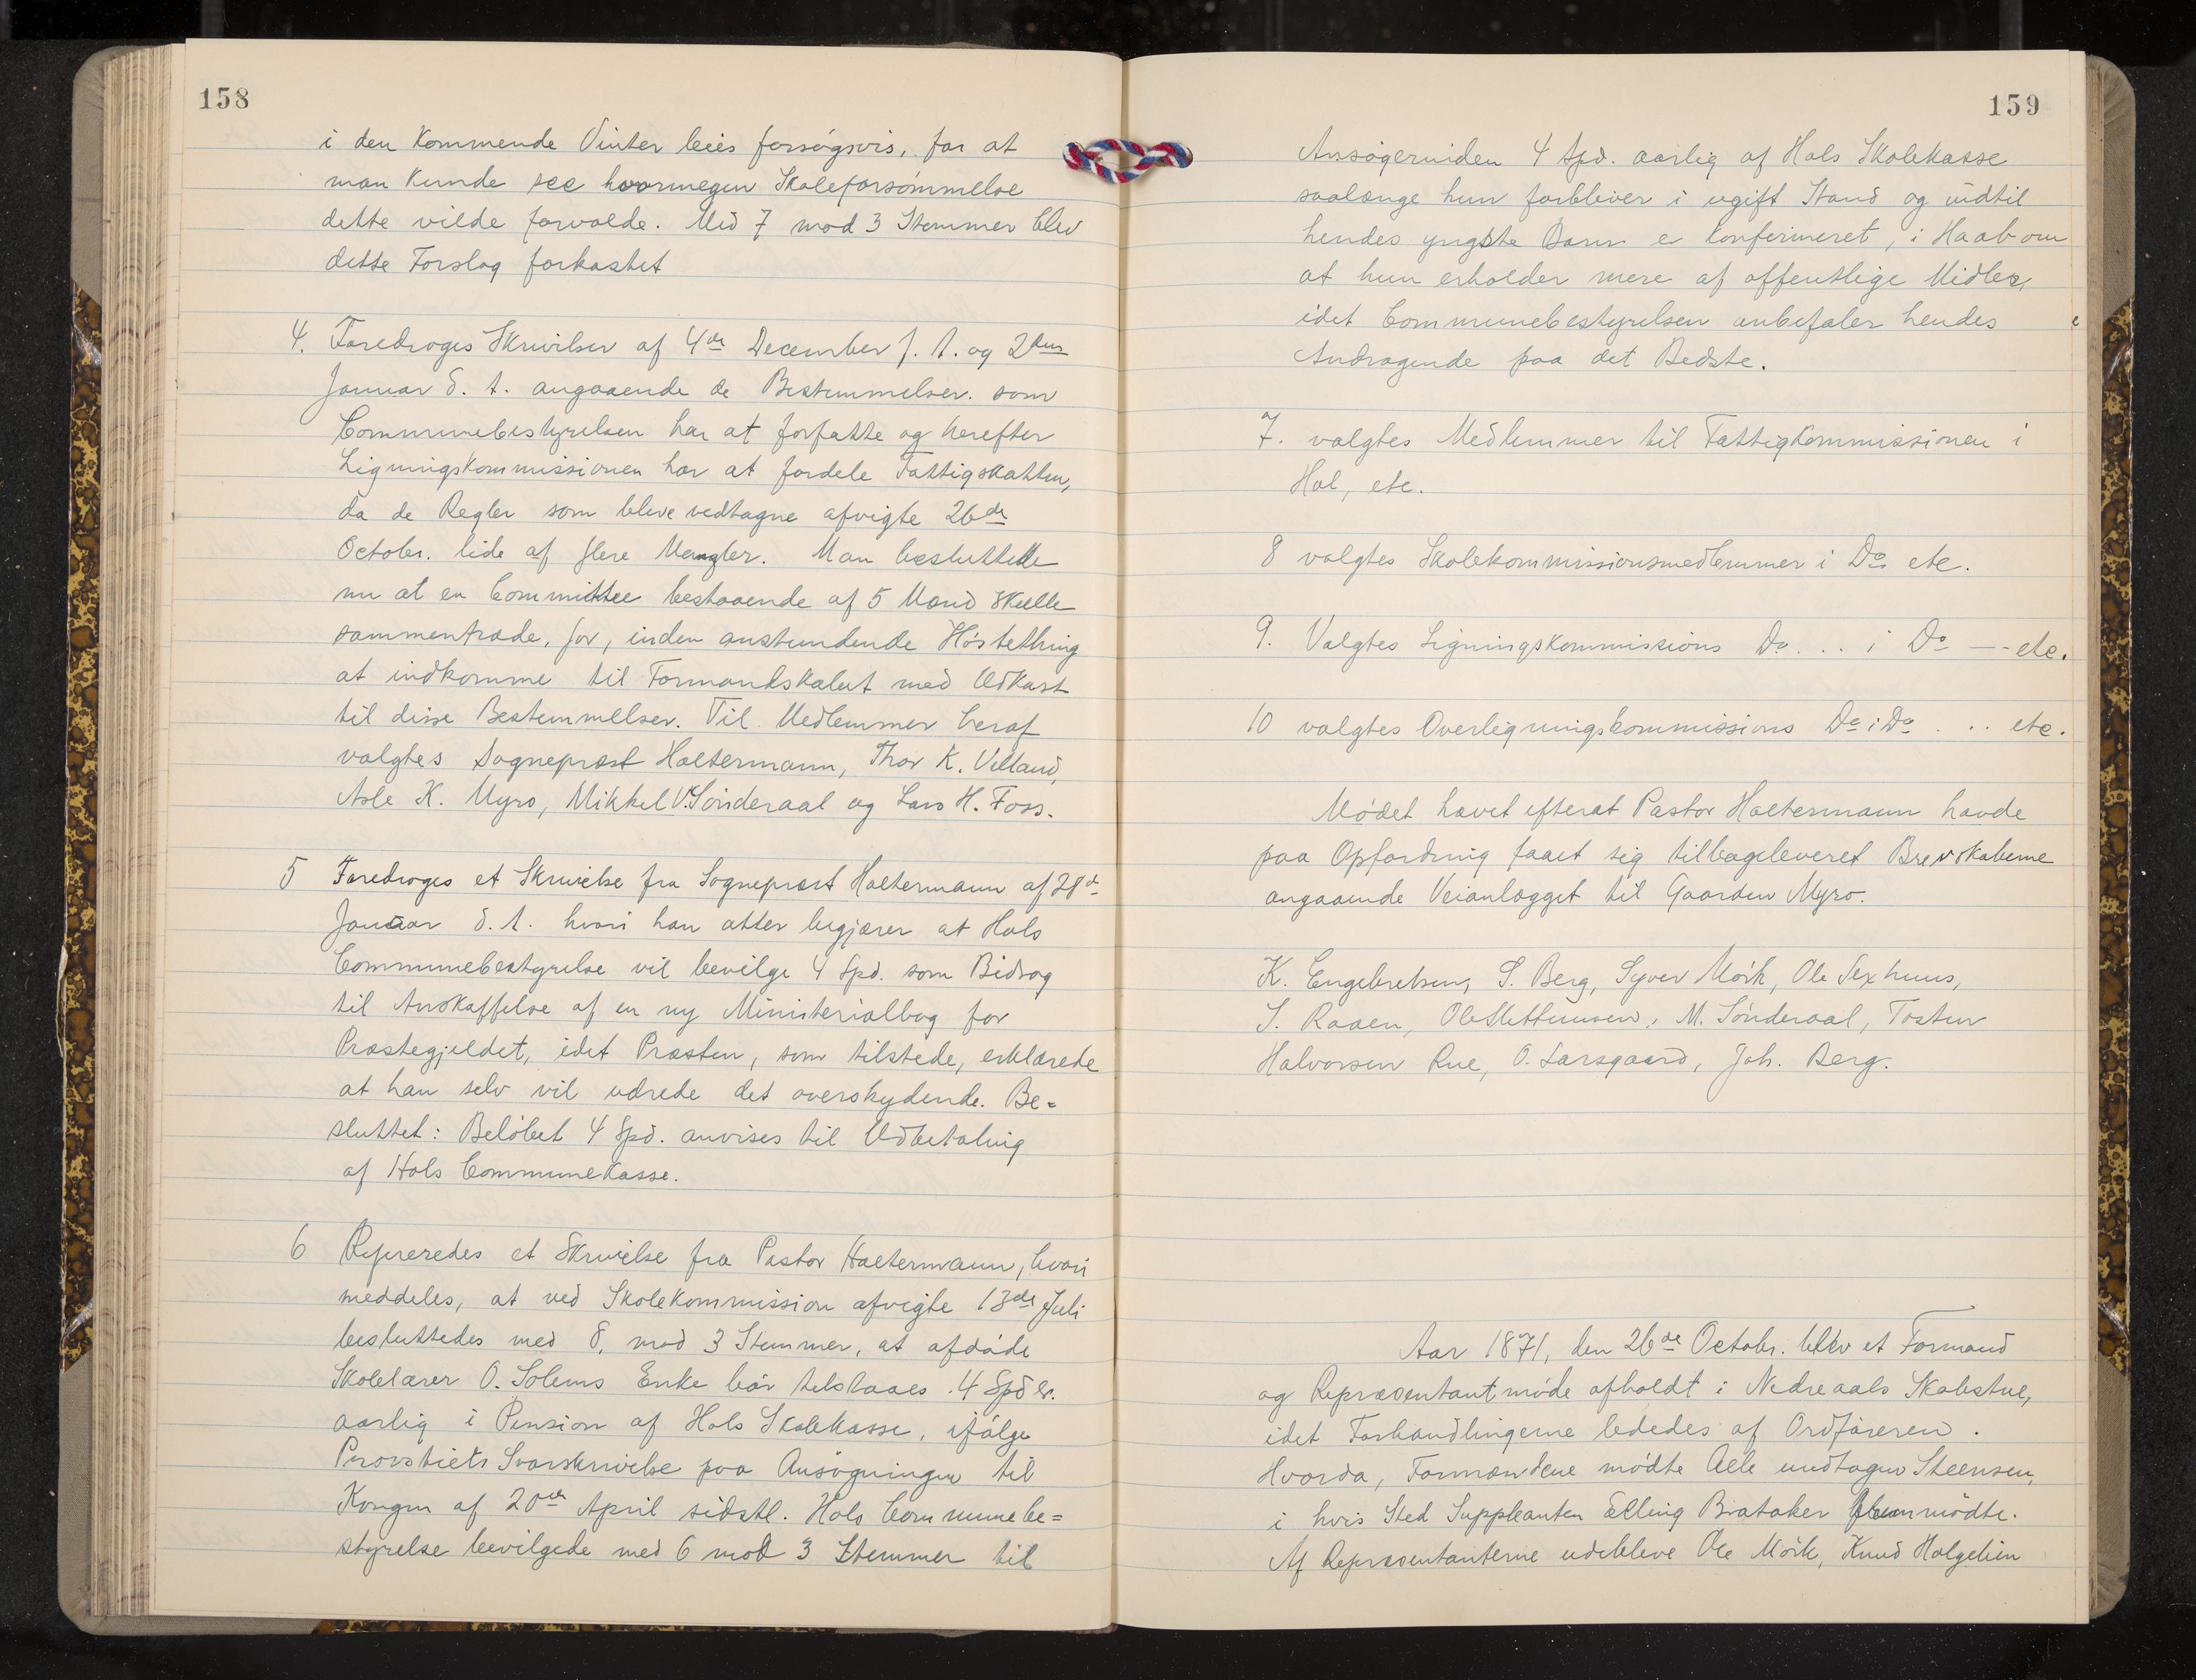 158
i den kommende Vinter leies forsøgsvis, for at
man kunde see hvormegen Skoleforsømmelse
dette vilde forvolde. Med 7 mod 3 Stemmer blev
dette Forslag forkastet
4. Foredroges Skrivelser af 4de December f. A. og 2den
Januar d. A. angaaende de Bestemmelser. som
Communebestyrelsen har at forfatte og herefter
Ligningskommissionen har at fordele Fattigskatten,
da de Regler som bleve vedtagne afvigte 26de
Octobr. lide af flere Mangler. Man besluttede
nu at en Committee bestaaende af 5 Mænd skulle
sammentræde, for, inden anstundende Høstething
at indkomme til Formandskabet med Udkast
til disse Bestemmelser. Til Medlemmer heraf
valgtes Sogneprest Holtermann, Thor K. Villand,
Asle K. Myro, Mikkel V. Sønderaal og Lars H. Foss.
5 Foredroges et Skrivelse fra Sogneprest Holtermann af 28de
Januar d. A. hvori han atter begjærer at Hols
Communebestyrelse vil bevilge 4 Spd. som Bidrag
til Anskaffelse af en ny Ministerialbog for
Præstegjeldet, idet Præsten, som tilstede, erklærede
at han selv vil udrede det overskydende. Be=
sluttet: Beløbet 4 Spd. anvises til Udbetaling
af Hols Communekasse.
6 Refereredes et Skrivelse fra Pastor Holtermann, hvori
meddeles, at ved Skolekommission afvigte 13de Juli
besluttedes med 8, mod 3 Stemmer, at afdøde
Skolelærer O. Solems Enke bør tilstaaes 4 Spdlr.
aarlig i Pension af Hols Skolekasse, ifølge
Provstiets Svarskrivelse paa Ansøgningen til
Kongen af 20de April sidstl. Hols Communebe=
styrelse bevilgede med 6 mod 3 Stemmer til
159
Ansøgerinden 4 Spd. aarlig af Hols Skolekasse
saalænge hun forbliver i ugift Stand og indtil
hendes yngste Barn er konfirmeret, i Haab om
at hun erholder mere af offentlige Midler,
idet Communebestyrelsen anbefaler hendes
Andragende paa det Bedste.
7. valgtes Medlemmer til Fattigkommissionen i
Hol, etc.
8 valgtes Skolekommissionsmedlemmer i Do etc.
9. Valgtes Ligningskommissions Do . . . i Do — - etc.
10 valgtes Overligningskommissions Do i Do . . . etc.
Mødet hævet efterat Pastor Holtermann havde
paa Opfordring faaet sig tilbageleveret Brevskaberne
angaaende Veianlægget til Gaarden Myro.
K. Engebretsen, S. Berg, Syver Mørk, Ole Sexhuus,
S. Raaen, Ole Slettemoen, M. Sønderaal, Tosten
Halvorsen Rue, O. Larsgaard, Joh. Berg.
Aar 1871, den 26de Octobr. blev et Formand
og Repræsentantmøde afholdt i Nedreaals Skolestue,
idet Forhandlingerne lededes af Ordføreren.
Hvorda, Formændene mødte Alle undtagen Steensen,
i hvis Sted Suppleanten Elling Brataker fremmødte.
Af Repræsentanterne udebleve Ole Mørk, Knud Holgehein